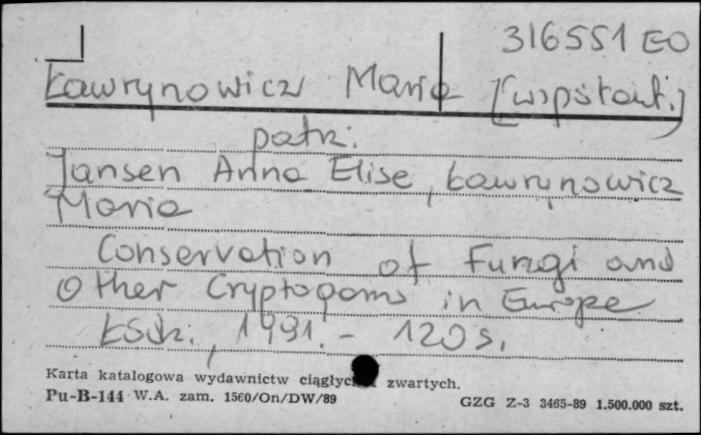 316551 EO
Ławrynowicz Maria [współaut.]
patrz:
Jansen Anna Elise, Ławrynowicz
Maria
Conservation of Fungi and
Other Cryptogams in Europe
Łódź, 1991. - 120 s.
Karta katalogowa wydawnictw ciągłych zwartych.
Pu-B-144 W.A. zam. 1560/On/DW/89
GZG Z-3 3465-89 1.500.000 szt.